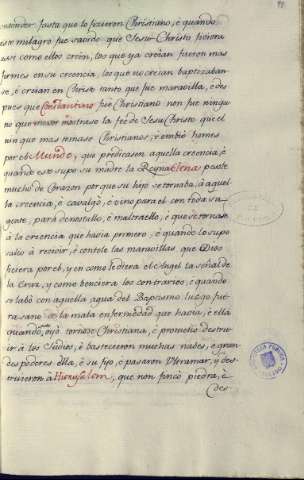 entender fasta que lo ficieron Christiano, è quando
este milagro fue saordo que Jesur Christo ficiera
asi como ellos creìn, los que ya creìan fueron mas
firmes en su creencia, los que no creian baptizaban-
se, è creìan en Christo tanto que fue maravilla, è des
pues que Constantino fue Christiano non fue ningu
no que menor mostrase la feè de Jesu Christo qui el
nin que mas temase Christianos, è embiò homes
por el Mundo, que predicasen aquella creencia, è
quando esto supo su madre la Reyna Elena pesole
mucho de Corazon porque su hijo se tornaba, à aquel
la creencia, è cavalgò, è vino para el con toda su
gente, parà denostallo, è maltraello, è que se tornase
à la creencia que havia primero, è quando lo supo
saliò à recivir, è contole las maravillas que Dios
ficiera por el, y en como le diera el Angel la señal de
la Cruz, y como venciera los contrarios, è quando
se labò con aquella agua del Baptismo luego fue
ra sano de la mala enfermedad que havia, è ella
quando esto oyò tornose Christiana, è prometiò destru
ir à los Judios, è bastecieron muchas nades, è gran
des poderes ella, è su fijo, è pasaron Vltramar, y des
truieron à Hierusalem, que non fincò piedra, è
des